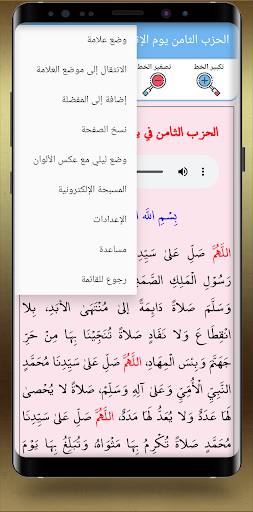 الحزب الثامن يوم الإث
تكبير الخط
تصغير الخط
وضع علامة
الانتقال إلى موضع العلامة
إضافة إلى المفضلة
نسخ الصفحة
وضع ليلي مع عكس الألوان
المسبحة الإلكترونية
الإعدادات
مساعدة
رجوع للقائمة
الحزب الثامن في ي
بِسْمِ اللَّه ا
اللَّهُمَّ صَلِّ عَلىٰ سَيِّدِ
رَسُوْلِ الْمَلِكِ الصَّمَدِ
وَسَلَّمَ صَلَاةً دَائِمَةً إِلىٰ مُنْتَهَى الْأَبَدِ، بِلَا
انْقِطَاعٍ وَلَا نَفَادٍ صَلَاةً تُنَجِّيْنَا بِهَا مِنْ حَرِّ
جَهَنَّمَ وَبِئْسَ الْمِهَادِ، اللَّهُمَّ صَلِّ عَلىٰ سَيِّدِنَا مُحَمَّدٍ
النَّبِيِّ الْأُمِّيِّ وَعَلىٰ آلِهِ وَسَلِّمْ، صَلَاةً لَا يُحْصىٰ
لَهَا عَدَدٌ وَلَا يُعَدُّ لَهَا مَدَدٌ، اللَّهُمَّ صَلِّ عَلىٰ سَيِّدِنَا
مُحَمَّدٍ صَلَاةً تُكْرِمُ بِهَا مَثْوَاهُ، وَتُبَلِّغُ بِهَا يَوْمَ